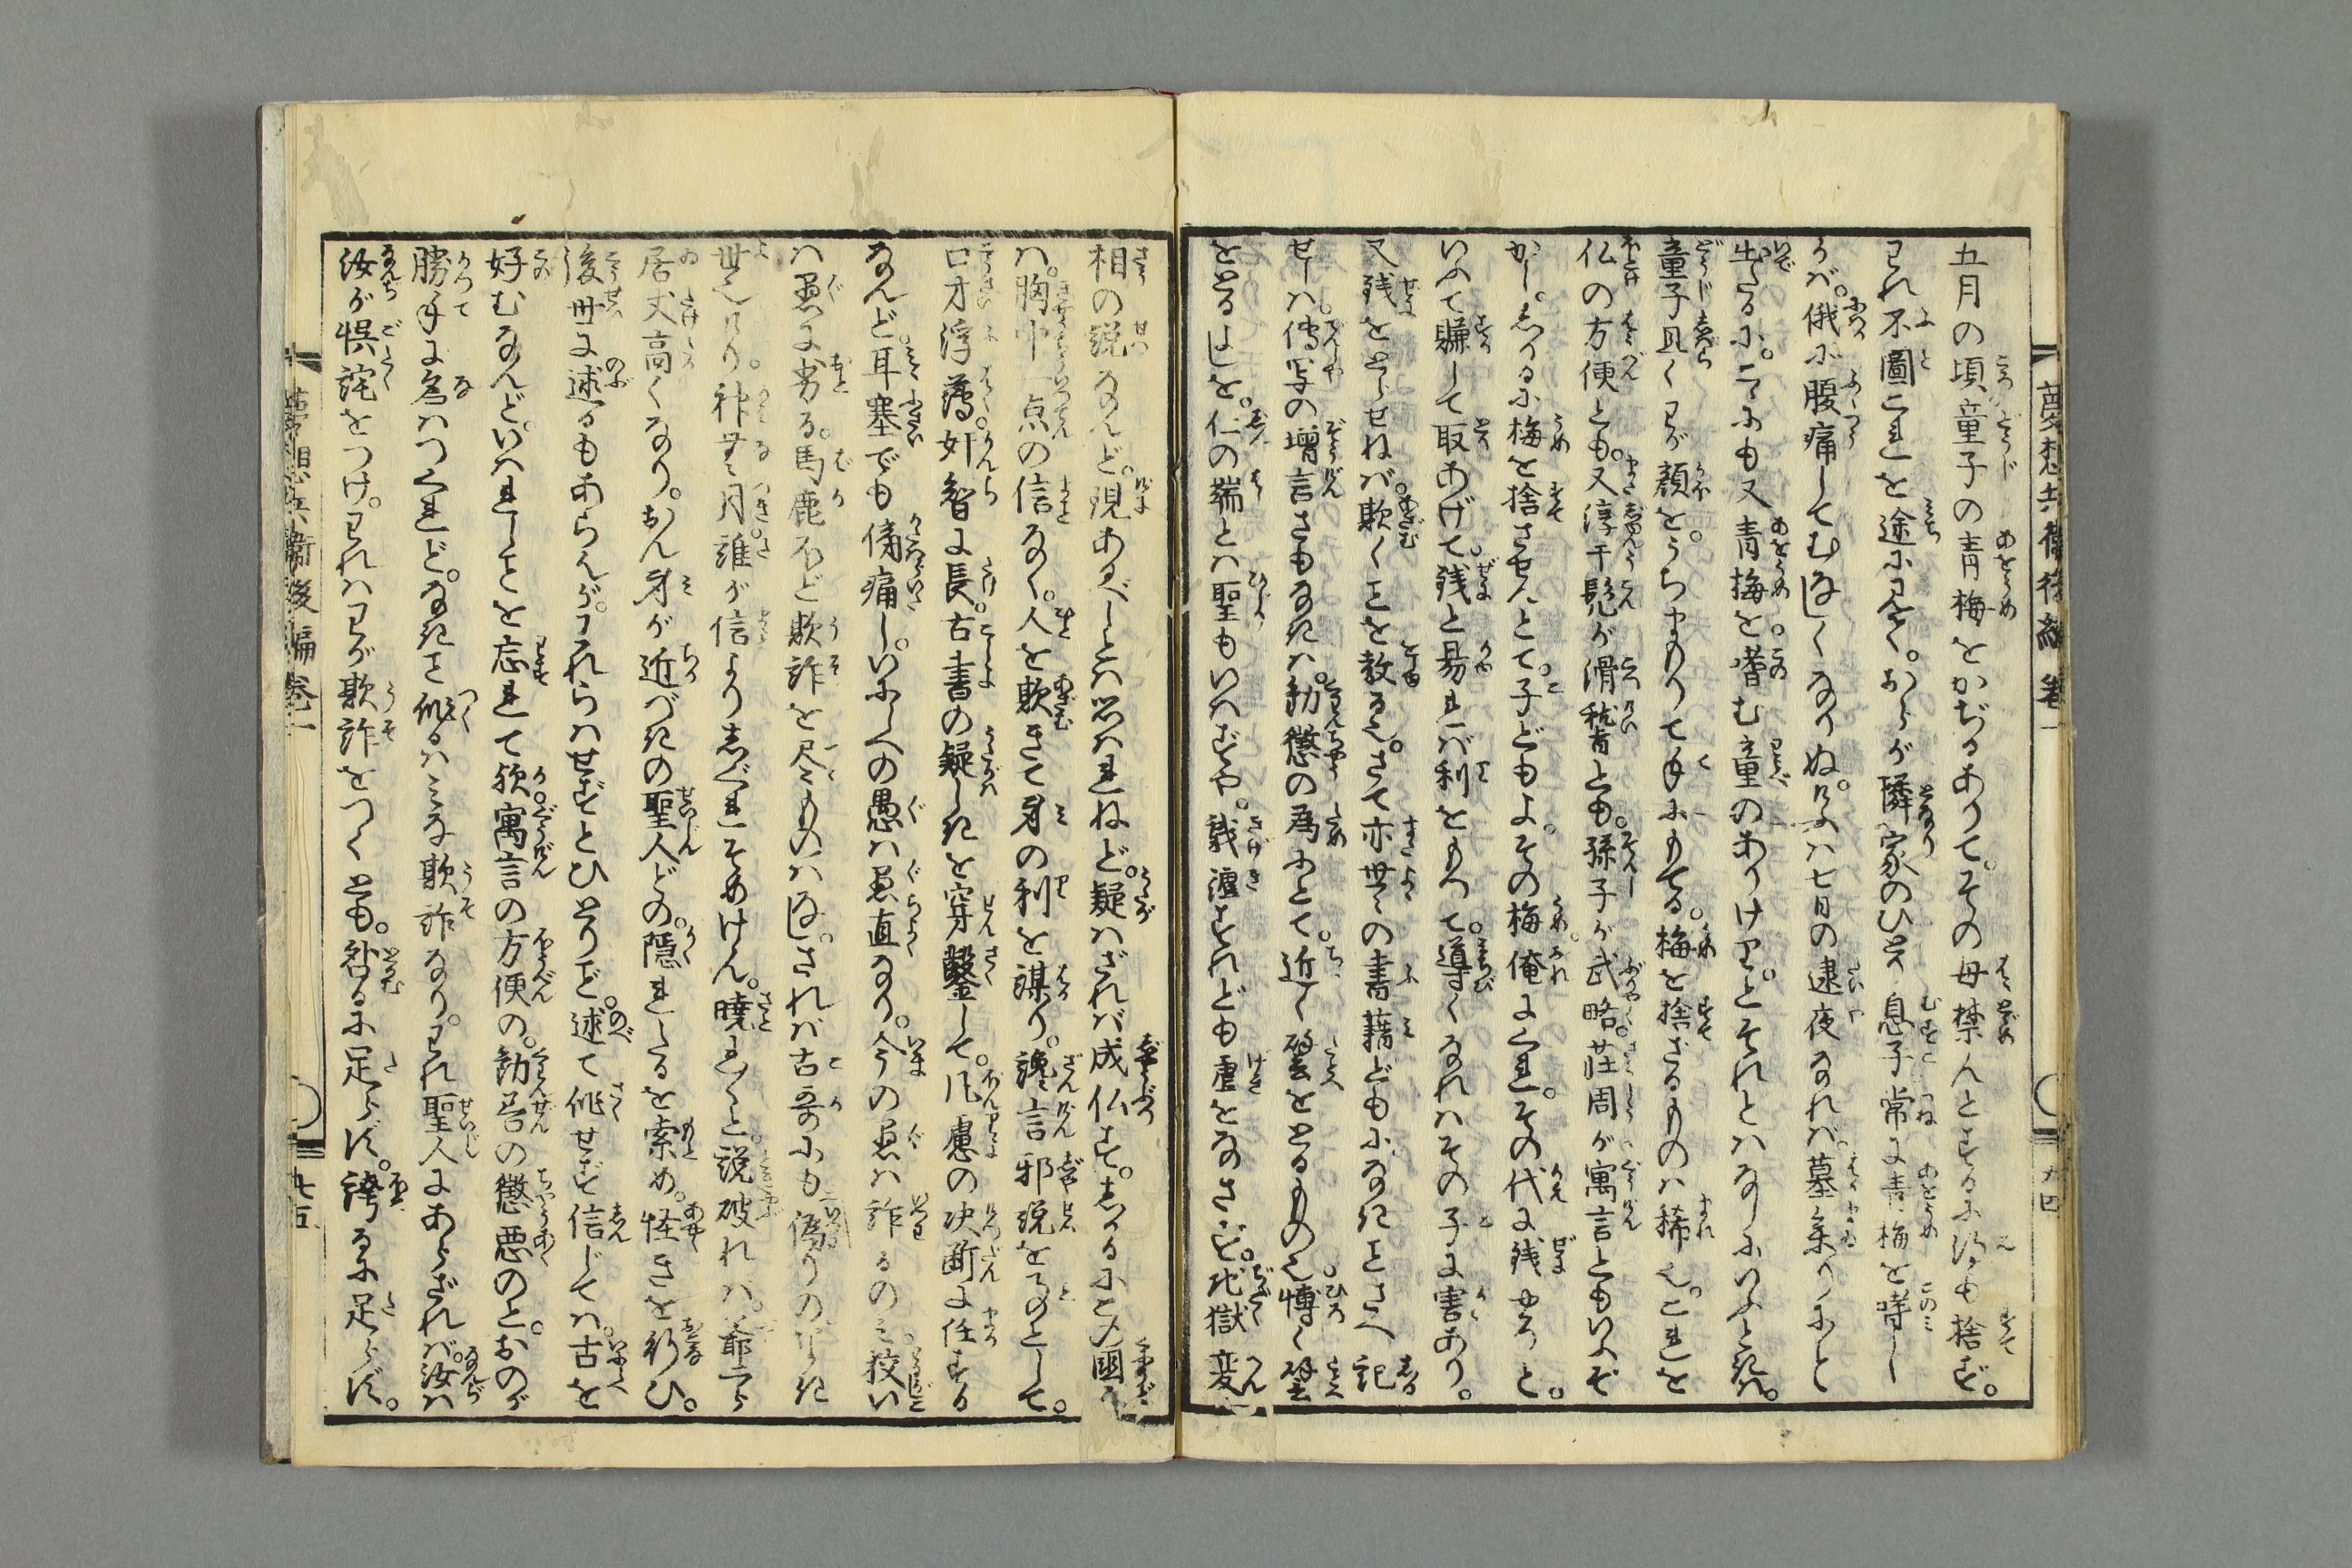 夢想兵衛後編 巻一
五月の頃童子の青梅をかぢるありて。その母禁んとするに得も捨ず。
われ不圖これを途にして。おらが隣家のひとり息子常に青梅を嗜し
かば。俄に腹痛してむなしくなりぬ。けふは七日の逮夜なれば。墓参りにと
出たるに。こゝにも又青梅を嗜む童のありけりと。それとはなしにいふときは。
童子且くわが顔を。うちまもりて手にもてる。梅を捨ざるものは稀也。これを
仏の方便とも。又淳于髡が滑稽とも。孫子が武略。荘周が寓言ともいふぞ
かし。しかるに梅を捨させんとて。子どもよ。その梅俺にくれ。その代に銭やらうと。
いふて賺して取あげて。銭と易れば利をもつて。導くなればその子に害あり。
又銭をとらせねば。欺くことを教る也。さて亦世々の書籍どもに。なきことさへ記
せしは。傳写の増言さもなきは。勧懲の為にとて。近く譬をとるもの也。博く譬
をとるはしを。仁の端とは聖もいはずや。戯謔すれども虐をなさず。地獄変
相の説なんど。現あるべしとは思はれねど。疑はざれば成仏す。しかるにこの國
は。胸中一点の信なく。人を欺きて身の利を謀り。讒言邪説をものとして。
口才浮薄。奸智に長。古書の疑しきを穿鑿して。凡慮の决断に任する
なんど。耳塞でも傍痛し。いにしへの愚は愚直なり。今の愚は詐るのみ。狡い
は愚に劣る。馬鹿ほど欺詐を尽ものはなし。されば古哥にも偽りのなき
世也けり。神無月誰が信よりしぐれそめけん。暁れしと。説破れは。爺から
居丈高くなり。おん身が近づきの聖人どの。隠れたるを索め。怪きを行ひ。
後世に述るもあらんが。われらはせずとひとりで。述て作せず信じては。古を
好むなんど。いはれしことを忘れて歟。寓言の方便の。勧善の懲悪のと。おのが
勝手に為はつくれど。なきこと作るはみな欺詐なり。われ聖人にあらざれば。汝は
汝が惧詫をつけ。われはわが欺詐をつくとも。咎るに足らず。誇るに足らず。
夢想兵衛後編 巻一
九五